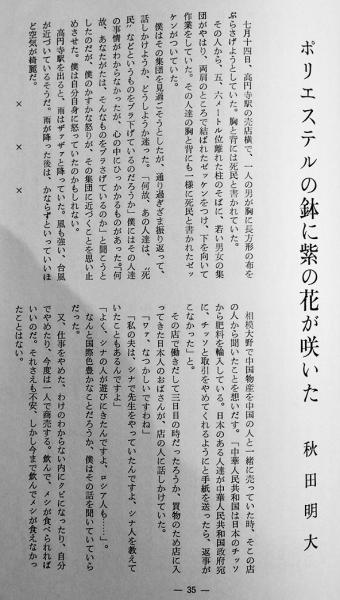 ポリエステルの鉢に紫の花が咲いた
秋田明大
七月十四日、高円寺駅の売店横で、一人の男が胸に長方形の布を
ぶらさげようとしていた。胸と背には死民と書かれていた。
その人から、五、六メートル位離れた柱のそばに、若い男女の集
団がやはり、両肩のところで結ばれたゼッケンをつけ、下を向いて
作業をしていた。その人達の胸と背にも一様に死民と書かれたゼッ
ケンがついていた。
僕はその集団を見過ごそうとしたが、通り過ぎざま振り返って、
話しかけようか、どうしようか迷った。「何故、あの人達は、〝死
民〟などというものをブラ下げているのだろうか」僕にはその人達
の事情がわからなかったが、心の中にひっかかるものがあった。〝何
故、あなたがたは、そんなものをブラさげているのか〟と聞こうと
したのだが、僕のかすかな怒りが、その集団に近づくことを思い止
めさせた。僕は自分自身に怒っていたのかもしれない。
高円寺駅を出ると、雨はザァザァと降っていた。風も強い、台風
が近づいているそうだ。雨が降った後は、かならずといっていいほ
ど空気が綺麗だ。
× × ×
相模大野で中国物産を中国の人と一緒に売っていた時、そこの店
の人から聞いたことを想いだす。「中華人民共和国は日本のチッソ
から肥料を輸入している。日本のある人達が中華人民共和国政府宛
に、チッソと取引をやめてくれるようにと手紙を送ったら、返事が
こなかった」と。
その店で働きだして三日目の時だったろうか、買物のため店に入
ってきた日本人のおばさんが、店の人に話しかけていた。
「ワァ、なつかしいですわね」
「私の夫は、シナで先生をやっていたんですよ、シナ人を教えて
いたこともあるんですよ」
「よく、シナの人が遊びにきたんですよ、ロシア人も……」。
なんと国際色豊かなことだろうか、僕はその話を聞いていていら
だった。
又、仕事をやめた、わけのわからない内にクビになったり、自分
でやめたり、今度は一人で商売する。飲んで、メシが食べられれば
いいのだ。それさえも不安、しかし今まで飲んでメシが食えなかっ
たことはない。
— 35 —